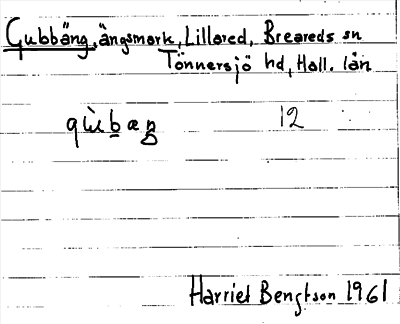 Gubbäng, ängsmark, Lillared, Breareds sn
Tönnersjö hd, Hall. län
12
Harriet Bengtson 1961